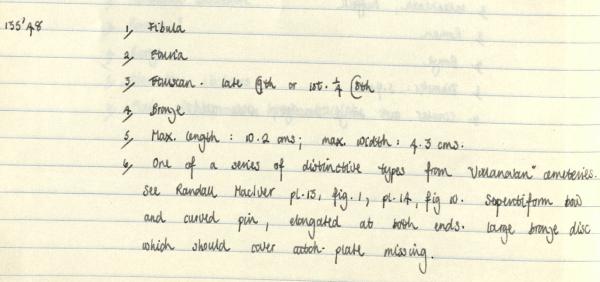 135'48 1, Fibula
2, Etruria
3, Etruscan. late 9th or 1st. 1/4 8th
4, Bronze
5, Max. length : 10.2 cms; max. width : 4.3 cms.
6, One of a series of distinctive types from "Villanovan" cemeteries.
See Randall MacIver pl.13, fig.1, pl.14, fig 10. Serpentiform bow
and curved pin, elongated at both ends. Large bronze disc
which should cover catch-plate missing.